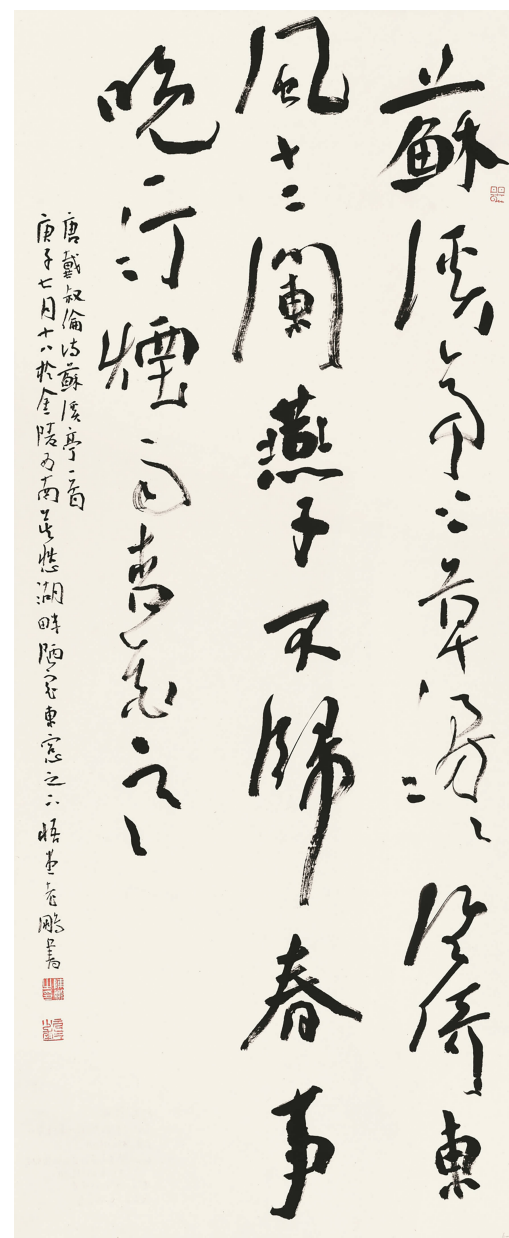 蘇溪亭上草漫漫誰倚東
風十二闌燕子不歸春事
晚一汀煙雨杏花寒
唐戴叔倫詩蘇溪亭一首
庚子七月十八於金陵西南莫愁湖畔陋室東窗之下悟堂老鵬書